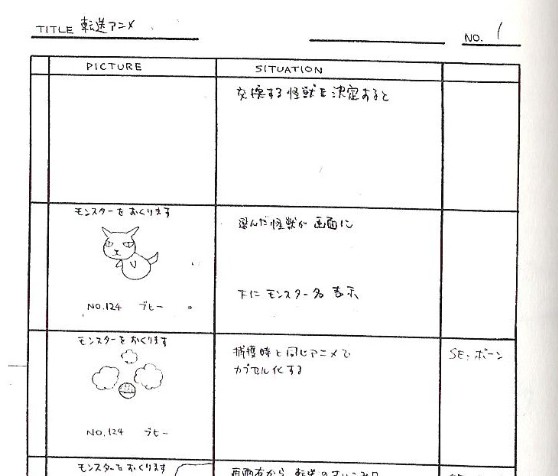 TITLE 転送アニメ
NO. 1
PICTURE
SITUATION
交換する怪獣を決定すると
モンスターをおくります
選んだ怪獣が画面に
下にモンスター名表示
NO.124 ブヒー
モンスターをおくります
捕獲時と同じアニメで
カプセル化する
SE:ボーン
NO.124 ブヒー
モンスターをおくります
画面右から転送の